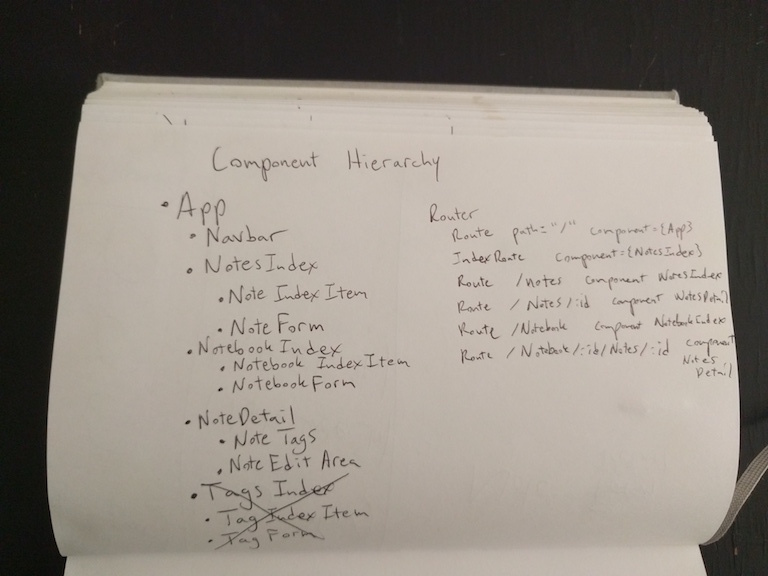 Component Hierarchy
• App
• Navbar
• NotesIndex
• Note IndexItem
• NoteForm
• Notebook Index
• Notebook IndexItem
• NotebookForm
• NoteDetail
• Note Tags
• Note Edit Area
• Tags Index
• Tag Index Item
• Tag Form
Router
Route path="/" Component={App}
IndexRoute Component={NotesIndex}
Route /notes component NotesIndex
Route /Notes/:id component NotesDetail
Route /Notebook component NotebookIndex
Route /Notebook/:id/Notes/:id component
Notes
Detail